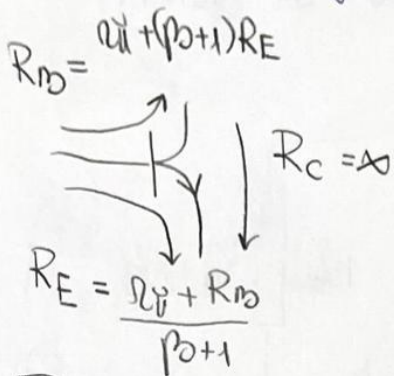 R_B = rπ + (β+1)R_E
R_C = ∞
R_E = (rπ + R_B) / (β+1)